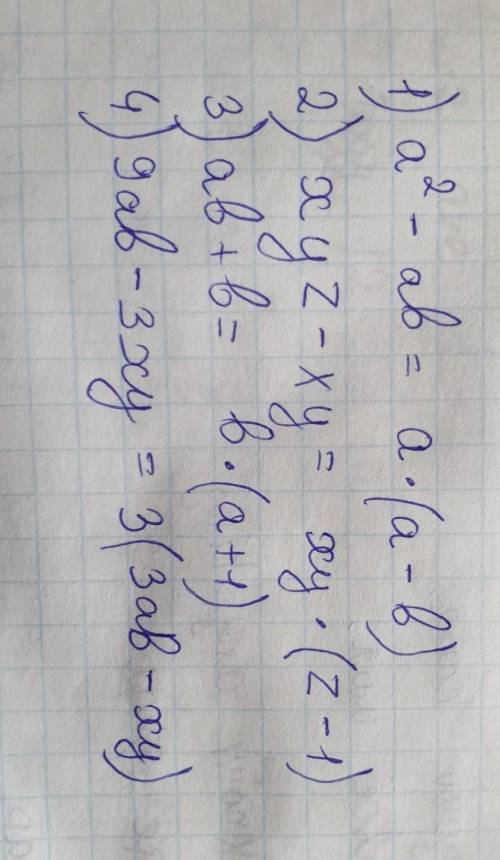 1) a² - ab = a·(a - b)
2) xyz - xy = xy·(z - 1)
3) ab + b = b·(a + 1)
4) 9ab - 3xy = 3(3ab - xy)